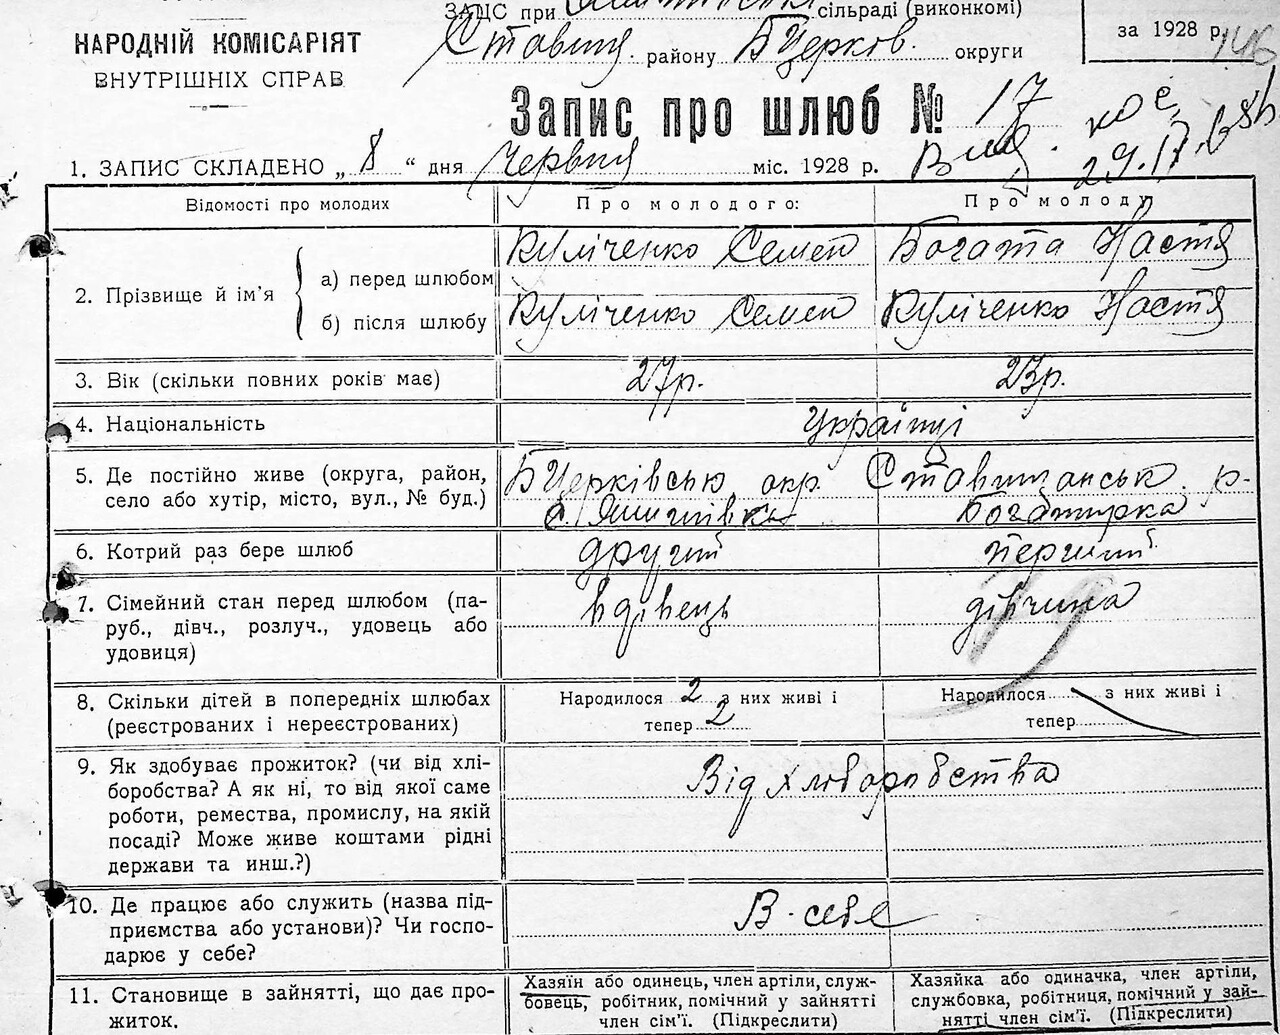 ЗАЦС при сільраді (виконкомі)
НАРОДНІЙ КОМІСАРІЯТ
ВНУТРІШНІХ СПРАВ
Ставищ. району БЦерков. округи
за 1928 р. 146
Запис про шлюб № 17
1. ЗАПИС СКЛАДЕНО „ 8 “ дня Червня міс. 1928 р.
Відомості про молодих
Про молодого:
Про молоду
2. Прізвище й ім'я
а) перед шлюбом
Куліченко Семен
Богата Настя
б) після шлюбу
Куліченко Семен
Куліченко Настя
3. Вік (скільки повних років має)
27р.
23р.
4. Національність
Українці
5. Де постійно живе (округа, район,
село або хутір, місто, вул., № буд.)
БЦерківськ окр Ставищанськ. р-
с.
6. Котрий раз бере шлюб
другий
перший
7. Сімейний стан перед шлюбом (па-
руб., дівч., розлуч., удовець або
удовиця)
вдівець
дівчина
8. Скільки дітей в попередніх шлюбах
(реєстрованих і нереєстрованих)
Народилося 2 з них живі і
тепер 2
Народилося з них живі і
тепер
9. Як здобуває прожиток? (чи від хлі-
боробства? А як ні, то від якої саме
роботи, ремества, промислу, на якій
посаді? Може живе коштами рідні
держави та инш.?)
Від хліборобства
10. Де працює або служить (назва під-
приємства або установи)? Чи госпо-
дарює у себе?
В себе
11. Становище в зайнятті, що дає про-
житок.
Хазяїн або одинець, член артіли, служ-
бовець, робітник, помічний у зайнятті
член сім'ї. (Підкреслити)
Хазяйка або одиначка, член артіли,
службовка, робітниця, помічний у зай-
нятті член сім'ї. (Підкреслити)